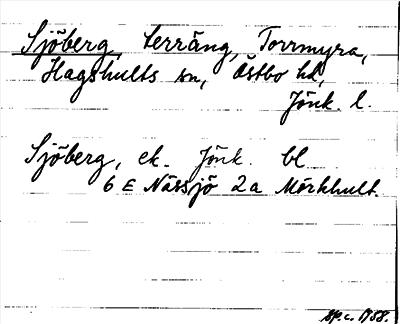 Sjöberg, terräng, Torrmyra,
Hagshults sn, Östbo hd,
Jönk. l.
Sjöberg, ek. Jönk. bl
6 E Nässjö 2a Mörkhult.
1958.